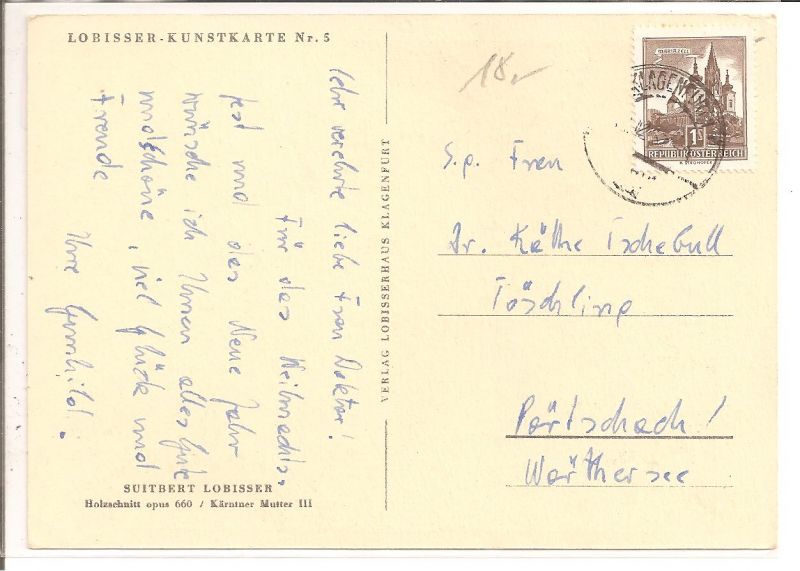 LOBISSER-KUNSTKARTE Nr. 5
Sehr verehrte liebe Frau Doktor!
Für das Weihnachts-
fest und das Neue Jahr
wünsche ich Ihnen alles Gute
und schöne, viel Glück und
Freude
Ihre Gunhild.
SUITBERT LOBISSER
Holzschnitt opus 660 / Kärntner Mutter III
VERLAG LOBISSERHAUS KLAGENFURT
18,-
MARIAZELL
1S
REPUBLIK ÖSTERREICH
KLAGENFURT
S.p. Frau
Dr. Käthe Tschebull
Töschling
Pörtschach!
Wörthersee